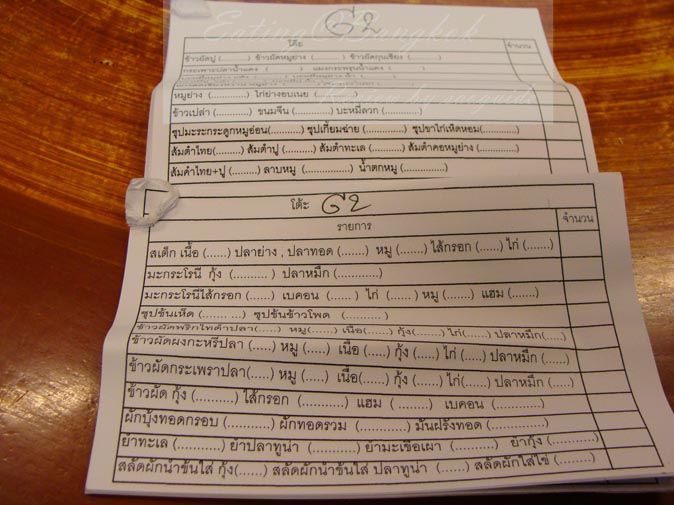 Eating@Bangkok
G2
โต๊ะ
จำนวน
ข้าวผัดปู (........) ข้าวผัดหมูย่าง (........) ข้าวผัดกุนเชียง (........)
กระเพาะปลาน้ำแดง (........)
หมูย่าง (........) ไก่ย่างอบเนย (........)
ข้าวเปล่า (........) ขนมจีน (...........) บะหมี่ลวก (..........)
ซุปมะระกระดูกหมูอ่อน(.........) ซุปเกี้ยมฉ่าย (..........) ซุปขาไก่เห็ดหอม(..........)
ส้มตำไทย(........) ส้มตำปู (........) ส้มตำทะเล (........) ส้มตำคอหมูย่าง (..........)
ส้มตำไทย+ปู (........) ลาบหมู (...............) น้ำตกหมู (............)
โต๊ะ G2
รายการ จำนวน
สเต็ก เนื้อ (......) ปลาย่าง , ปลาทอด (.......) หมู (.......) ไส้กรอก (......) ไก่ (.......)
มะกระโรนี กุ้ง (.........) ปลาหมึก (............)
มะกระโรนีไส้กรอก (......) เบคอน (......) ไก่ (......) หมู (.......) แฮม (.......)
ซุปข้นเห็ด (...... ...) ซุปข้นข้าวโพด (..........)
ข้าวผัดพริกไทดำปลา(.....) หมู(.....) เนื้อ(.....) กุ้ง(.......) ไก่(......) ปลาหมึก(.....)
ข้าวผัดผงกะหรี่ปลา (.....) หมู (.....) เนื้อ (.....) กุ้ง (.....) ไก่ (.....) ปลาหมึก (.....)
ข้าวผัดกระเพราปลา(.....) หมู (.....) เนื้อ(.....) กุ้ง (.....) ไก่(......) ปลาหมึก (.....)
ข้าวผัด กุ้ง (.........) ไส้กรอก (..........) แฮม (........) เบคอน (..........)
ผักบุ้งทอดกรอบ (..........) ผักทอดรวม (..........) มันฝรั่งทอด (...........)
ยำทะเล (..........) ยำปลาทูน่า (..........) ยำมะเขือเผา (..........) ยำกุ้ง (.........)
สลัดผักน้ำข้นใส่ กุ้ง(......) สลัดผักน้ำข้นใส่ ปลาทูน่า (......) สลัดผักใส่ไข่ (........)